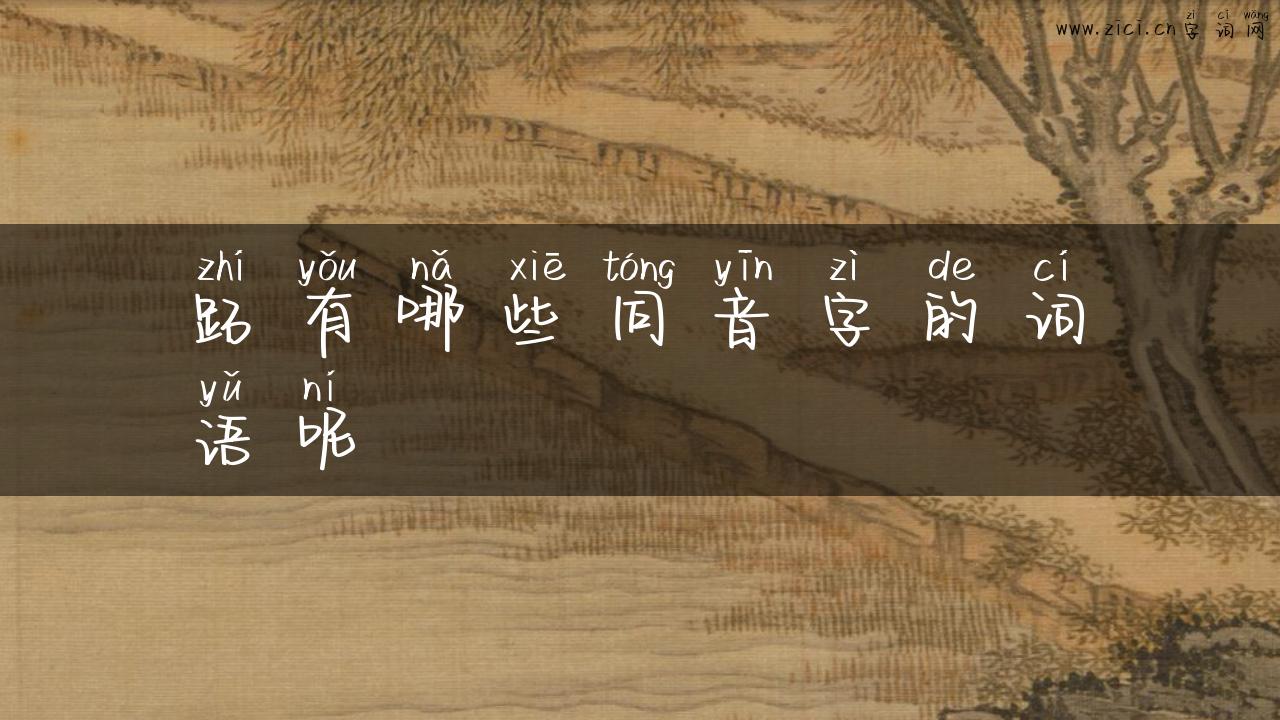 zì cí wǎng
www.zici.cn 字 词 网
zhí yǒu nǎ xiē tóng yīn zì de cí
跖 有 哪 些 同 音 字 的 词
yǔ ní
语 呢